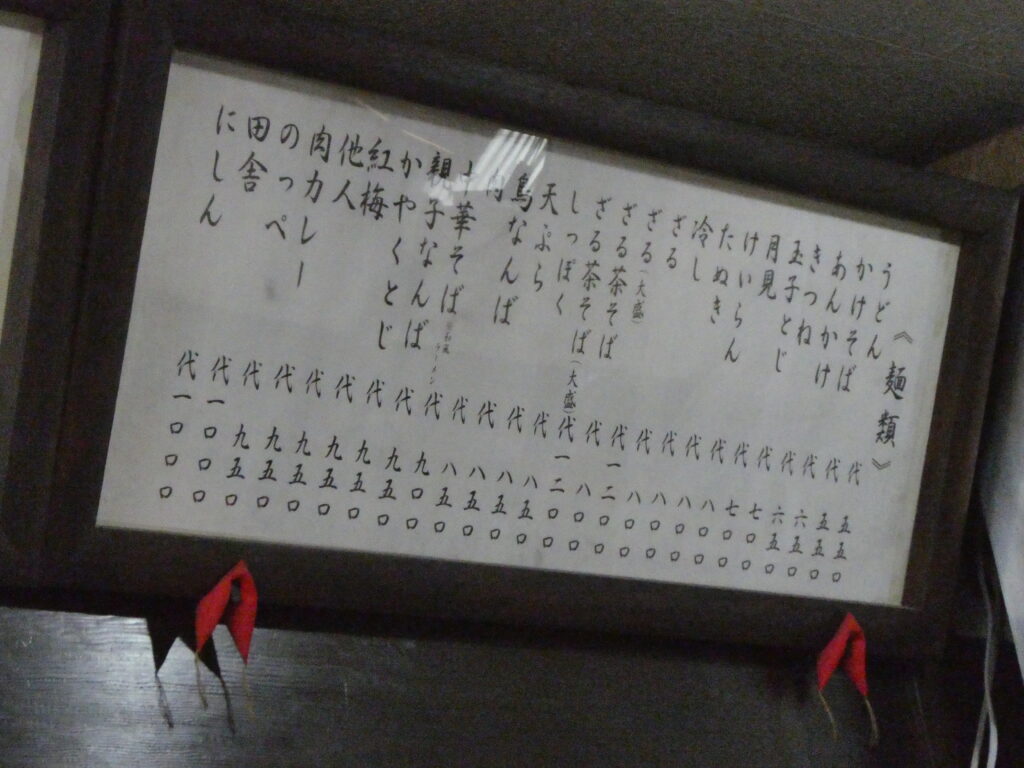 《麺類》
うどん 代 五五〇
かけそば 代 五五〇
あんかけ 代 六五〇
きつね 代 六五〇
玉子とじ 代 七〇〇
月見 代 七〇〇
けいらん 代 八〇〇
たぬき 代 八〇〇
冷し 代 八〇〇
ざる 代 八〇〇
ざる(大盛) 代一二〇〇
ざる茶そば 代 八〇〇
ざる茶そば(大盛) 代一二〇〇
しっぽく 代 八五〇
天ぷら 代 八五〇
鳥なんば 代 八五〇
肉 代 八五〇
中華そば 和風ラーメン 代 九〇〇
親子なんば 代 九五〇
かやくとじ 代 九五〇
紅梅 代 九五〇
他人 代 九五〇
肉カレー 代 九五〇
のっぺ 代 九五〇
田舎 代一〇〇〇
にしん 代一〇〇〇